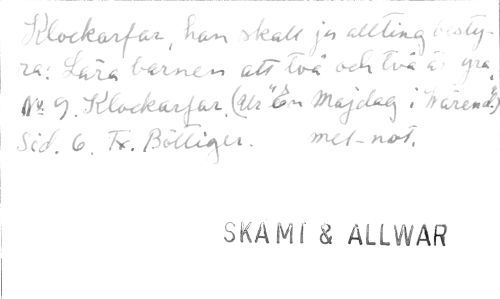 Klockarfar, han skall ju allting besty-
ra: Lära barnen att två och två ä' fyra
No 9. Klockarfar. (Ur "En Majdag i Wärend")
Sid. 6. Fr. Böttiger. mel-not.
SKÄMT & ALLWAR